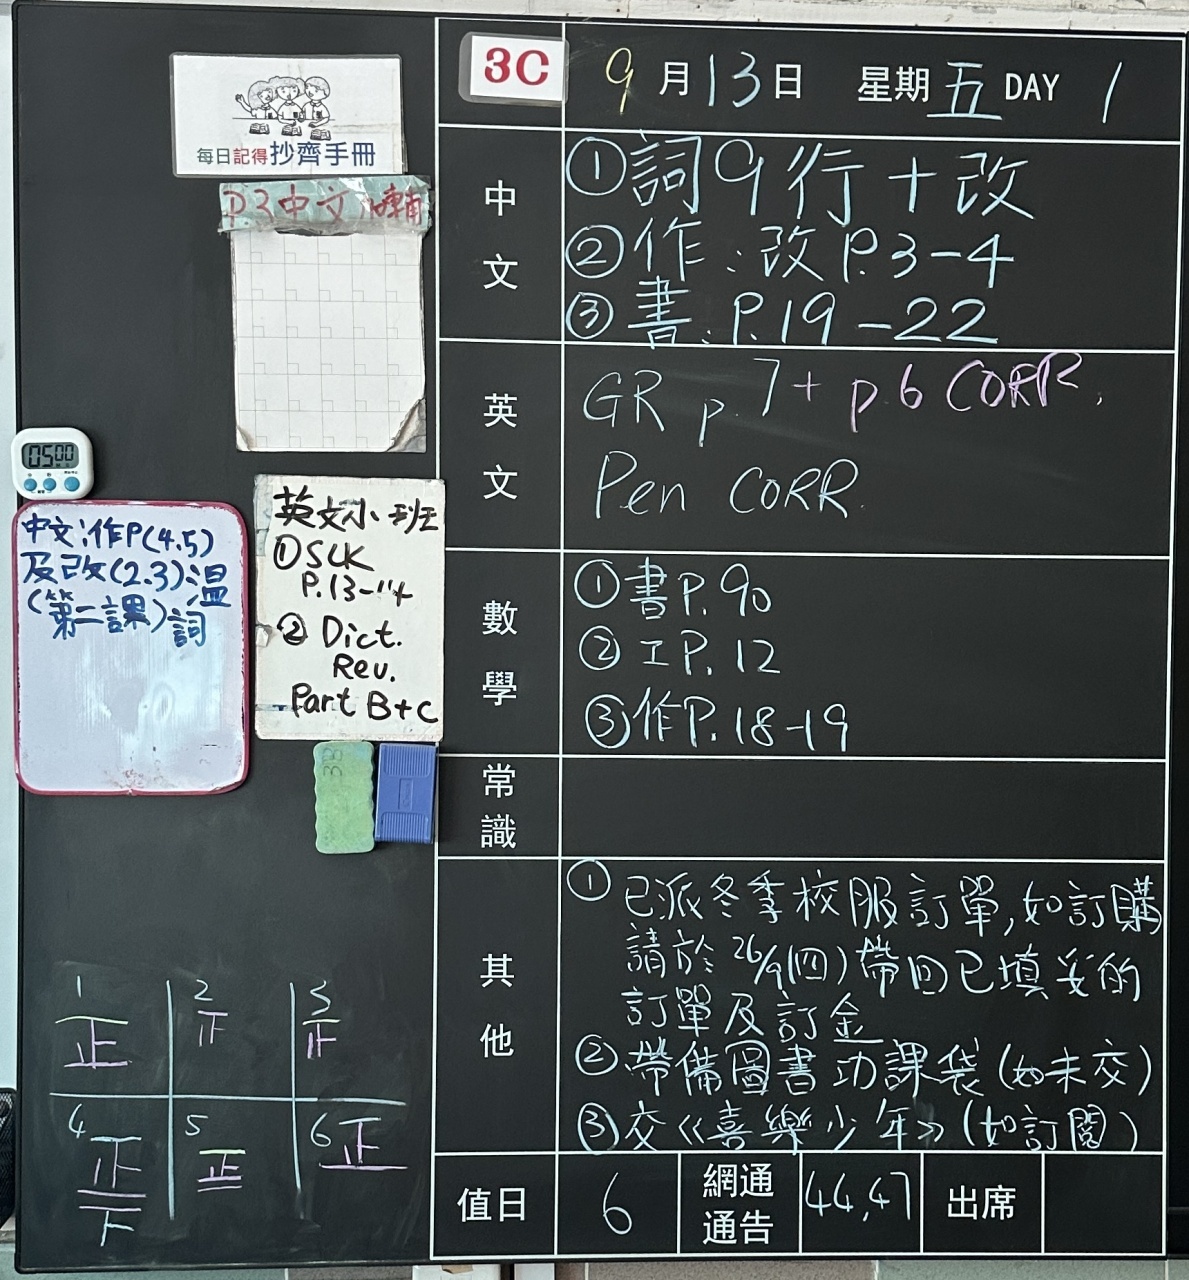 3C 9月13日 星期五 DAY 1
每日記得抄齊手冊
P3中文
中文
①詞9行+改
②作:改P.3-4
③書:P.19-22
英文
GR p.7+p6 CORR.
Pen CORR.
05:00
中文:作P(4.5)
及改(2.3)溫
(第二課)詞
英文小班
①SCK
P.13-14
② Dict.
Rev.
Part B+C
數學
①書P.90
②工P.12
③作P.18-19
3B
常識
其他
①已派冬季校服訂單,如訂購
請於26/9(四)帶回已填妥的
訂單及訂金
②帶備圖書功課袋(如未交)
③交《喜樂少年》(如訂閱)
1 2 3
正
4 5 6
正 正 正
值日 6 網通通告 44,47 出席